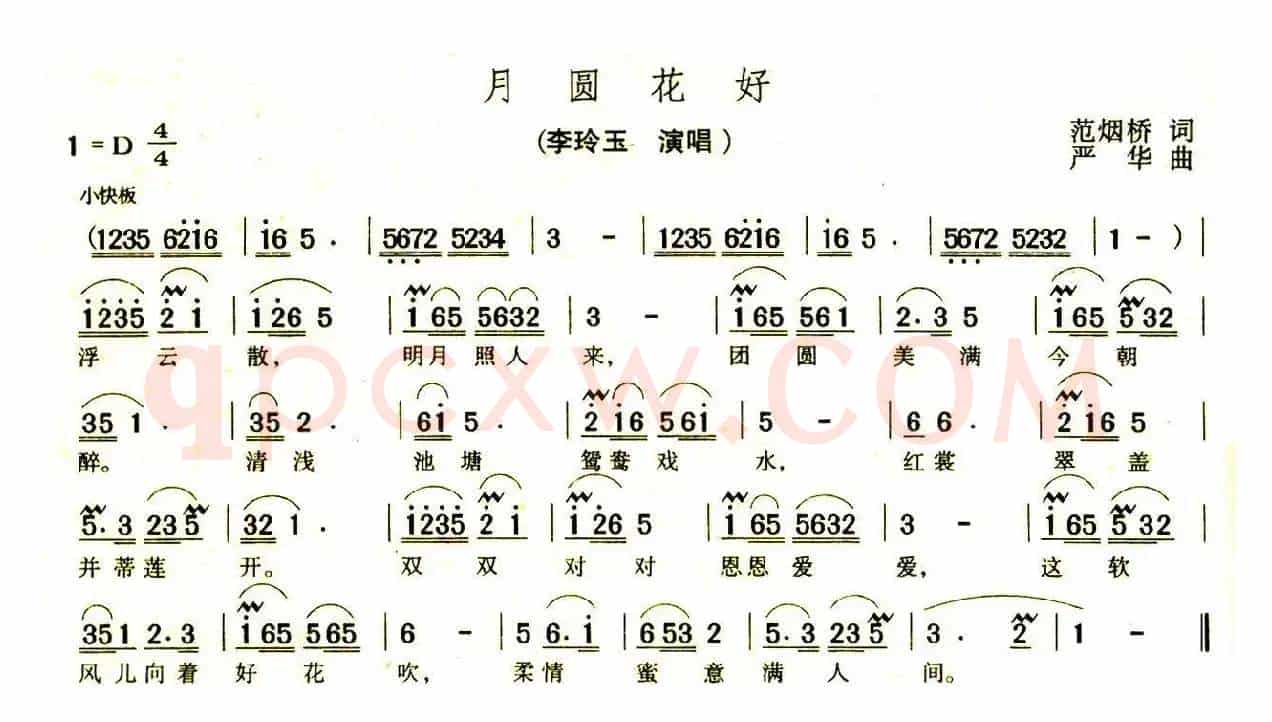 月圆花好
(李玲玉 演唱)
范烟桥 词
严华 曲
1 = D 4/4
小快板
(1235 6216 | i6 5 . | 5672 5234 | 3 - | 1235 6216 | i6 5 . | 5672 5232 | 1 - ) |
1235 2 1 | 126 5 | i65 5632 | 3 - | i65 561 | 2.3 5 | i65 532 |
浮云散,明月照人来,团圆美满今朝
35 1 . | 35 2 . | 6i 5 . | 2i6 56i | 5 - | 6 6 . | 2i6 5 |
醉。清浅池塘鸳鸯戏水,红裳翠盖
5.3 235 | 32 1 . | 1235 2 i | i26 5 | i65 5632 | 3 - | i65 532 |
并蒂莲开。双双对对恩恩爱爱,这软
351 2.3 | i65 565 | 6 - | 5 6.i | 653 2 | 5.3 235 | 3 . 2 | 1 - ‖
风儿向着好花吹,柔情蜜意满人间。
qpcxw.COM